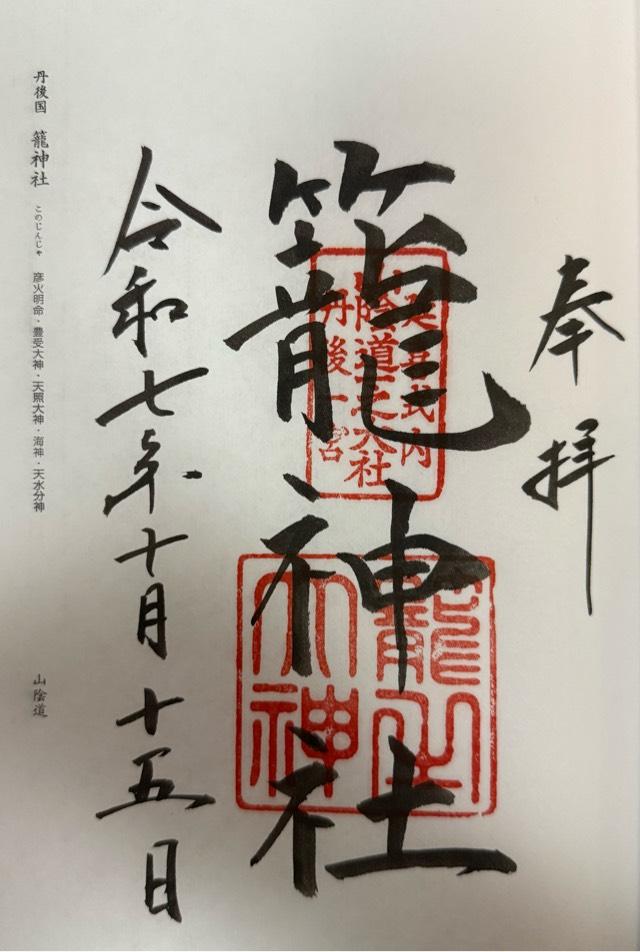 奉拝
籠神社
延喜式内
山陰道之大社
丹後一宮
籠之
大神
令和七年十月十五日
丹後国 籠神社 このじんじゃ 彦火明命・豊受大神・天照大神・海神・天水分神 山陰道